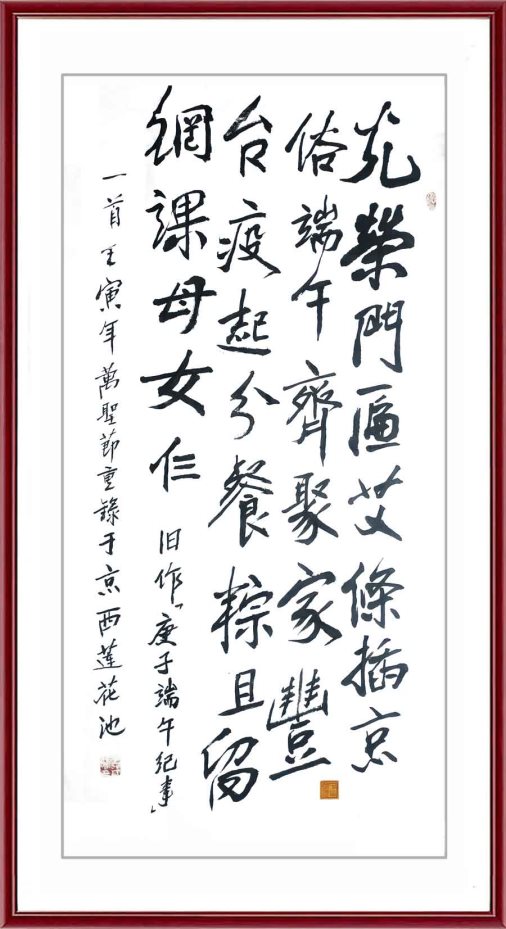 光榮門匾艾條插京
俗端午齊聚家豐
台疫起分餐粽且留
網課母女仨 旧作「庚子端午纪事」
一首壬寅年萬聖節重錄于京西蓮花池